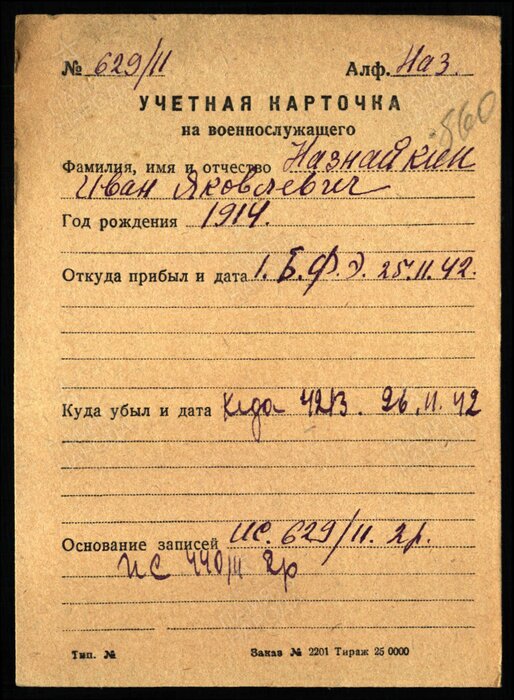 № 629/11 Алф. Наз.
УЧЕТНАЯ КАРТОЧКА
560
на военнослужащего
Фамилия, имя и отчество Назнайкин
Иван Яковлевич
Год рождения 1914.
Откуда прибыл и дата 1. Б.Ф.Э. 25.11.42.
Куда убыл и дата 26.11.42
Основание записей ИС. 629/11. 2р.
ИС 440/11 2р
Тип. № Заказ № 2201 Тираж 25 0000